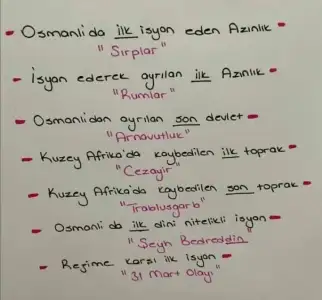 - Osmanlı da ilk isyan eden Azınlık -
"Sırplar"
- İsyan ederek ayrılan ilk Azınlık -
"Rumlar"
- Osmanlıdan ayrılan son devlet -
"Arnavutluk"
- Kuzey Afrika'da kaybedilen ilk toprak -
"Cezayir"
- Kuzey Afrika'da kaybedilen son toprak -
"Trablusgarb"
- Osmanlı da ilk dini nitelikli isyan -
"Şeyh Bedreddin"
- Rejime karşı ilk isyan -
"31 Mart Olayı"